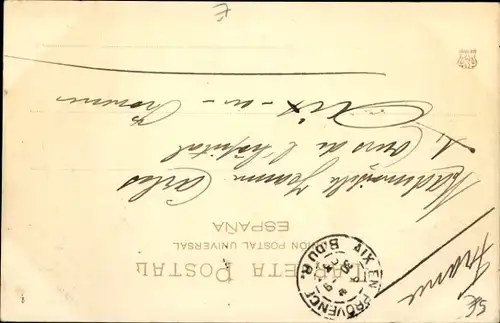 TARJETA POSTAL
UNION POSTAL UNIVERSAL
ESPAÑA
Mademoiselle Jeanne Carles
1. Cours de l'hôpital
Aix - en - Provence
France
AIX EN PROVENCE
B. DU R.
SE
E